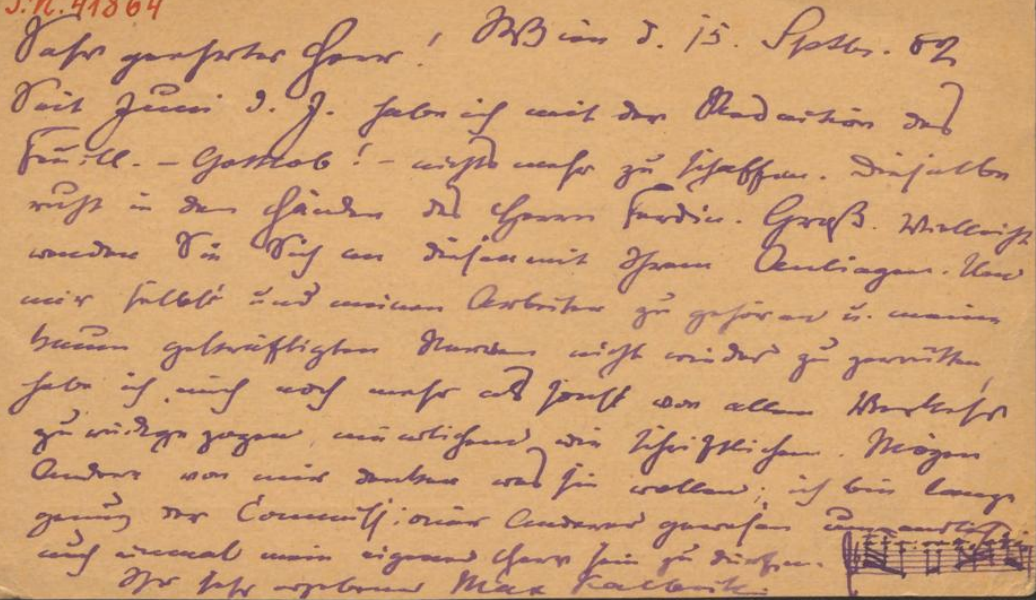 J.N. 41864
Wien d. 15. Septbr. 89
Sehr geehrter Herr!
Seit Juni d. J. habe ich mit der Redaction des
Feuill. – Gottlob! – nichts mehr zu schaffen. Dieselbe
ruht in den Händen des Herrn Ferdin. Groß. Vielleicht
wenden Sie Sich an diesen mit Ihrem Anliegen. Um
mir selbst und meinen Arbeiten zu gehören u. meine
kaum gekräftigten Nerven nicht wieder zu zerrütten,
habe ich mich noch mehr als sonst von allem Verkehr
zurückgezogen, mündlichem wie schriftlichem. Mögen
Andere von mir denken was sie wollen; ich bin lange
genug der Commissionär Anderer gewesen um endlich
auch einmal mein eigener Herr sein zu dürfen.
Ihr sehr ergebener Max Kalbeck